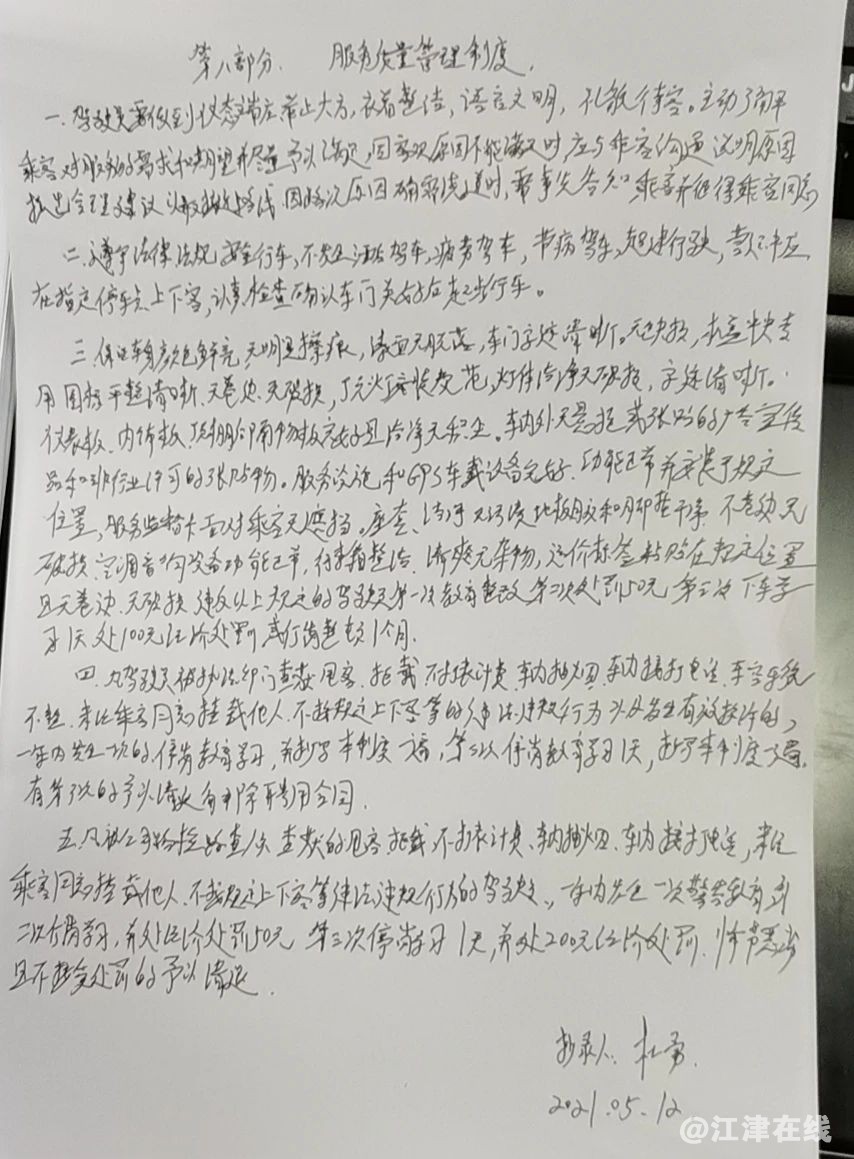 第八部分、 服务质量管理制度.
一.驾驶员要做到仪态端庄举止大方,衣着整洁,语言文明,礼貌待客。主动了解
乘客对服务的需求和期望并尽量予以满足,因客观原因不能满足时,应与乘客沟通说明原因
提出合理建议 因路况原因确需绕道时,需事先告知乘客并征得乘客同意
二.遵守法律法规 安全行车,不发生酒后驾车,疲劳驾车,带病驾车,超速行驶,
在指定停车点上下客,认真检查确认车门关好后起步行车。
三.保证车身颜色鲜亮 无明显擦痕,漆面无脱落,车门字迹清晰.无缺损,
用图标平整清晰.无卷边.无破损,顶灯 灯体洁净无破损,字迹清晰.
仪表板、内饰板、顶棚 隔物板完好且洁净无积尘。车内外无悬挂 张贴的广告宣传
品和非行业许可的张贴物。服务设施和GPS车载设备完好.功能正常并安装于规定
位置,服务监督卡面对乘客无遮挡。座套、洁净无污渍 地板胶和脚垫干净 不卷边无
破损.空调音响设备功能正常,行李箱整洁、清爽无杂物,运价标签粘贴在规定位置
且无卷边.无破损 违反以上规定的驾驶员第一次教育整改 第二次处罚50元 第三次下车学
习1天处100元经济处罚或 1个月.
四.凡驾驶员被执法部门查获甩客.拒载 不打表计费.车内抽烟.车内接打电话.车容车貌
不整.未征乘客同意搭载他人.不按规定上下客等的违法违规行为以及发生有效投诉的,
一年内发生一次的.停岗教育学习,并抄写本制度一遍,第二次停岗教育学习1天,抄写本制度
有第三次的予以清退 解除聘用合同.
五.凡被公司 检查 查获的甩客.拒载 不打表计费、车内抽烟、车内接打电话,未征
乘客同意搭载他人.不按规定上下客等违法违规行为的驾驶员.,年内发生一次警告教育
二次停岗学习,并处经济处罚50元 第三次停岗学习1天,并处200元经济处罚.情节恶劣
且不接受处罚的予以清退.
抄录人:杜勇.
2021.05.12
@江津在线